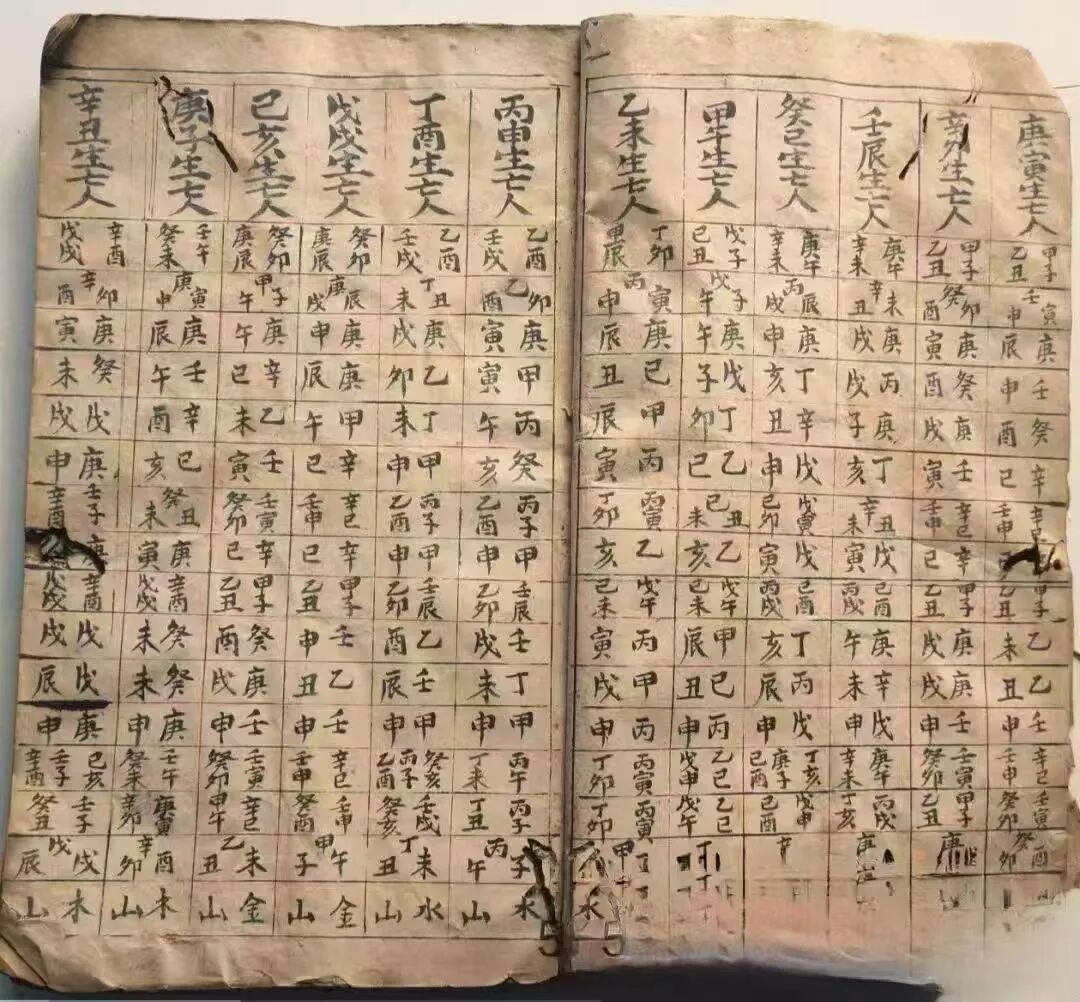 庚寅生亡人 甲子 乙丑 壬寅申 庚辰 壬申 癸酉 辛巳 辛巳 壬申 甲子 乙未 乙丑 壬申 辛巳 壬申 壬寅 癸卯 癸酉卯
辛卯生亡人 甲子 乙丑 癸卯酉 庚寅 癸酉 庚戌 壬寅 辛巳 壬申 辛巳 甲子 乙丑 庚戌 庚戌 壬申 壬寅 癸卯 甲子 乙丑 庚
壬辰生亡人 庚午 辛未 辛未丑 庚戌 丙戌 庚子 丁亥 辛丑未 戊寅 己酉 丙戌 庚午 辛未 戊申 庚午 辛未 丙戌 丁亥
癸巳生亡人 庚午 辛未 丙辰戌 庚申 丁亥 辛丑 戊申 戊寅 己卯 戊寅 己酉 丙戌 丁亥 丙辰 戊申 丁亥 庚子 己酉 戊申 己酉 辛
甲午生亡人 戊子 己丑 戊子午 庚午 戊子 丁卯 乙巳 己丑未 乙亥 戊午 己未 甲辰 己丑 丙申 乙巳 戊申 乙巳 戊午 丁
乙未生亡人 丁卯 甲辰 丙寅申 庚辰 己丑 甲辰 丙寅 丙寅 丁卯 乙亥 戊午 己未 丙寅 甲戌 丙申 丙寅 丁卯 丙寅 丁卯 甲 水
丙申生亡人 乙酉 壬戌 乙卯酉 庚寅 甲寅 丙午 癸亥 丙子 乙酉 甲申 壬辰 乙卯 壬戌 丁未 甲申 丙午 丁未 丙子 丁丑 丙子午 水山
丁酉生亡人 乙酉 壬戌 丁丑未 庚戌 乙卯 丁未 甲申 丙子 乙酉 甲申 壬辰 乙卯 乙酉 壬辰 甲申 癸亥 丙子 乙酉 壬戌 癸亥 丁未丑 水山
戊戌生亡人 癸卯 庚辰 庚辰戌 庚申 庚辰 甲午 辛巳 辛巳 壬申 辛巳 甲子 乙丑 壬申 乙丑 壬申 辛巳 壬申 壬申 癸酉 甲午子 金山
己亥生亡人 癸卯 庚辰 甲子午 庚午 辛巳 乙未 壬寅 壬寅 癸卯 辛巳 甲子 乙丑 癸酉 庚戌 壬申 壬寅 癸卯 辛巳 甲午 乙未丑 金山
庚子生亡人 壬午 癸未 庚寅申 庚辰 壬午 辛酉 己亥 癸丑未 庚寅 辛酉 戊戌 癸未 癸未 庚申 壬午 癸未 庚寅 辛卯 辛酉卯 木山
辛丑生亡人 辛酉 戊戌 辛卯酉 庚寅 癸未 戊戌 庚申 壬子 辛酉 庚 辛酉 戊戌 戊戌 戊辰 庚申 己亥 壬子 辛酉 壬子 癸丑 戊戌辰 木山